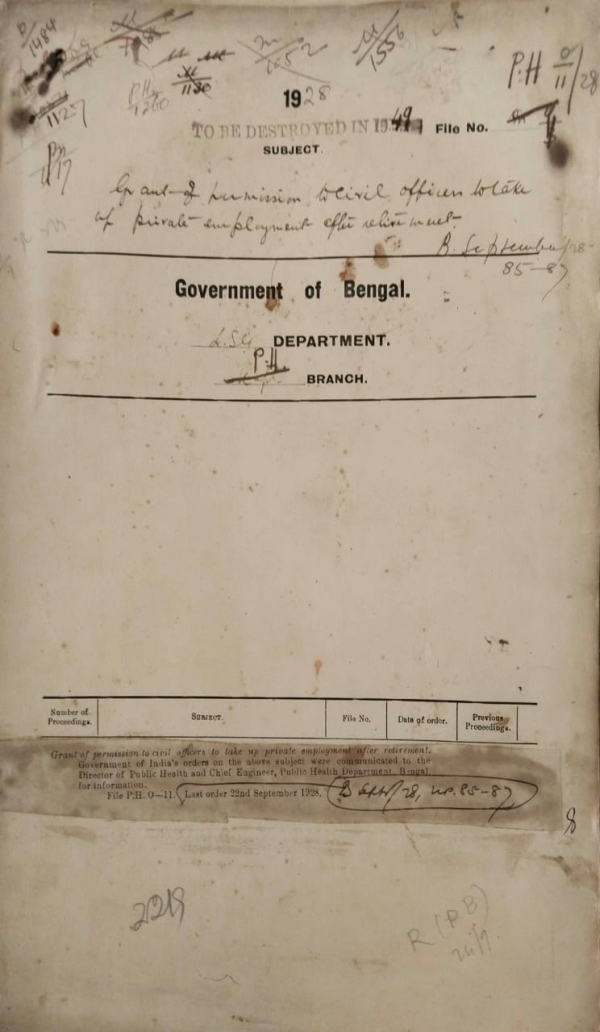 1484
1130
1652
1556
1127
1260
P.H O/11/28
1928
TO BE DESTROYED IN 1949 File No.
SUBJECT.
Grant of permission to civil officers to take
up private employment after retirement.
B. September/28
85-87
Government of Bengal.
L.S.G DEPARTMENT.
P.H. BRANCH.
Number of Proceedings. SUBJECT. File No. Date of order. Previous Proceedings.
Grant of permission to civil officers to take up private employment after retirement.
Government of India's orders on the above subject were communicated to the
Director of Public Health and Chief Engineer, Public Health Department, Bengal,
for information.
File P.H. O—11. Last order 22nd September 1928. B Sept/28, no. 85-87
8
R (P B)